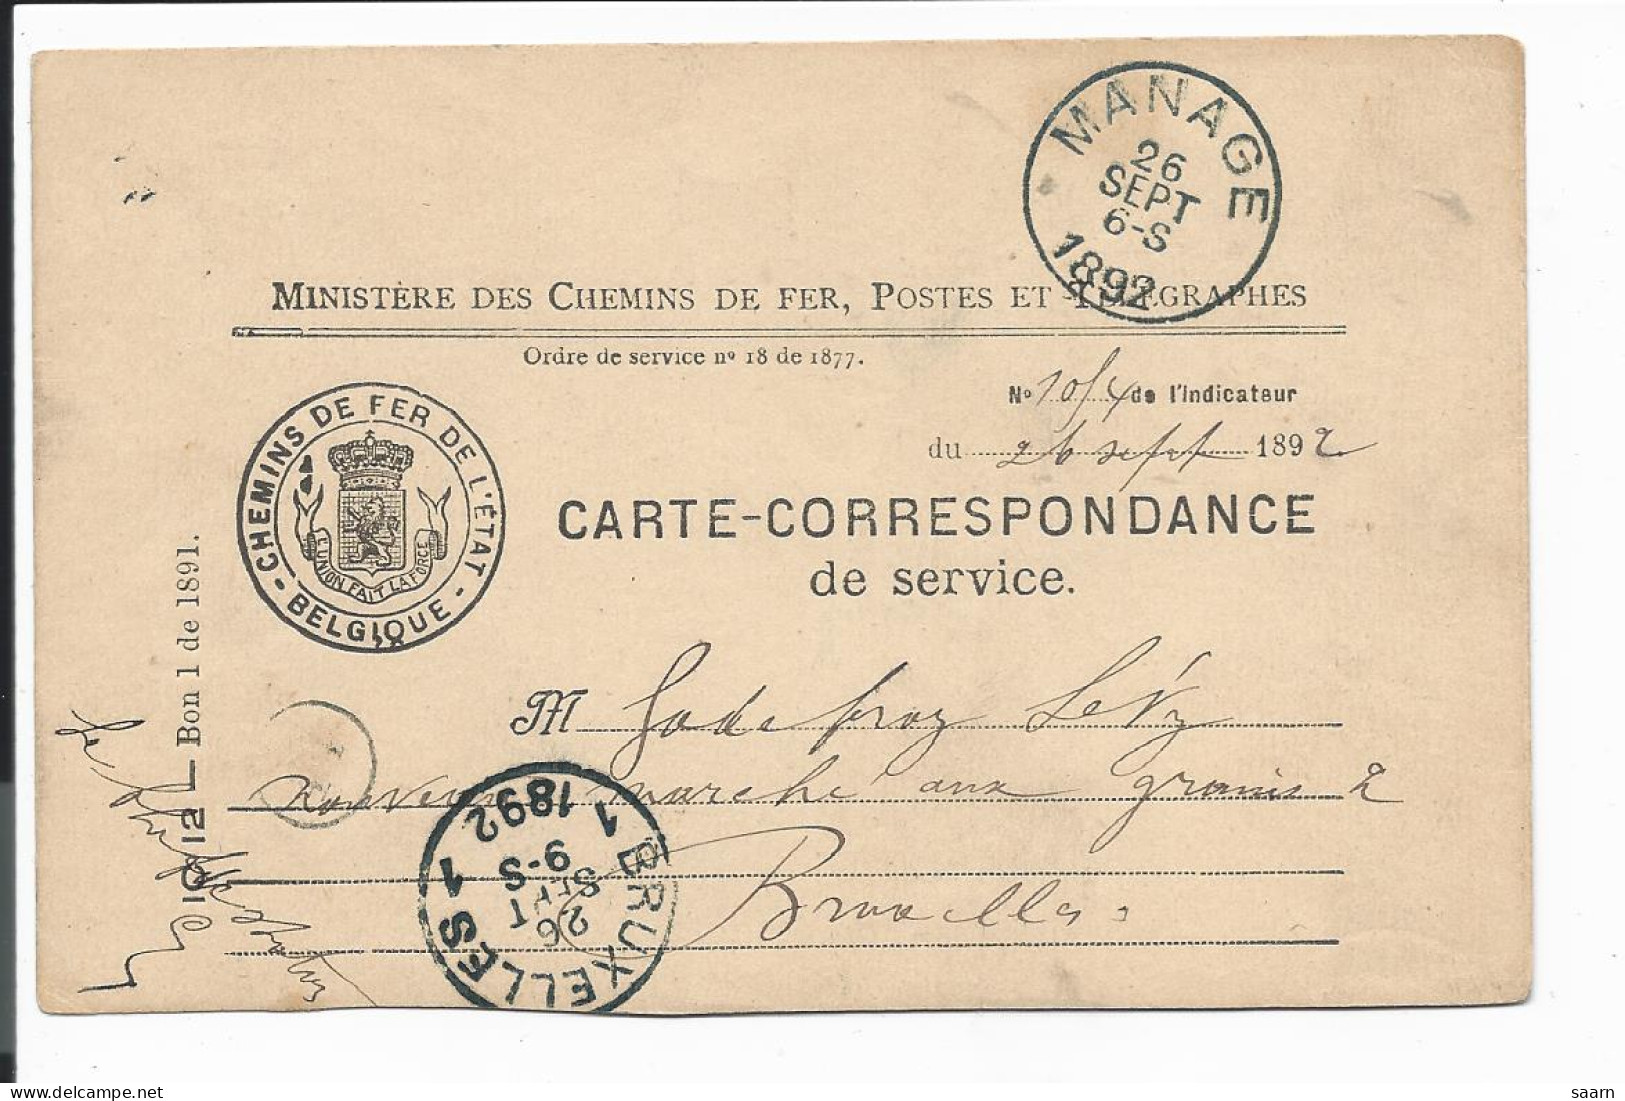 MANAGE
26
SEPT
6-S
1892
MINISTÈRE DES CHEMINS DE FER, POSTES ET TÉLÉGRAPHES
Ordre de service nº 18 de 1877.
Nº 1014 de l'Indicateur
du 26 sept 1892
CHEMINS DE FER DE L'ÉTAT
- BELGIQUE -
L'UNION FAIT LA FORCE
CARTE-CORRESPONDANCE
de service.
M Godefroy Levy
nouveau marché aux grains 2
Bruxelles
1 BRUXELLES 1
26
SEPT
9-S
1892
Bon 1 de 1891.
delcampe.net
saarn